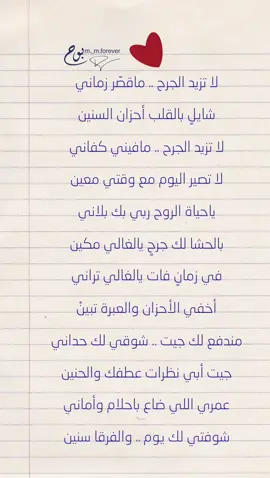 بوح
m_m.forever
لا تزيد الجرح .. ماقصّر زماني
شايلٍ بالقلب أحزان السنين
لا تزيد الجرح .. مافيني كفاني
لا تصير اليوم مع وقتي معين
ياحياة الروح ربي بك بلاني
بالحشا لك جرحٍ يالغالي مكين
في زمانٍ فات يالغالي تراني
أخفي الأحزان والعبرة تبينْ
مندفع لك جيت .. شوقي لك حداني
جيت أبي نظرات عطفك والحنين
عمري اللي ضاع باحلام وأماني
شوفتي لك يوم .. والفرقا سنين